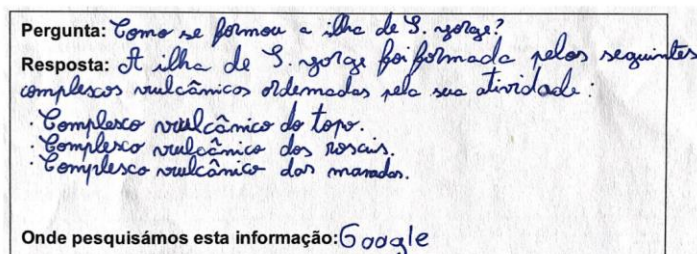 Pergunta: Como se formou a ilha de S. Jorge?
Resposta: A ilha de S. Jorge foi formada pelos seguintes
complexos vulcânicos ordenados pela sua atividade:
· Complexo vulcânico do topo.
· Complexo vulcânico dos rosais.
· Complexo vulcânico das manadas.
Onde pesquisámos esta informação: Google